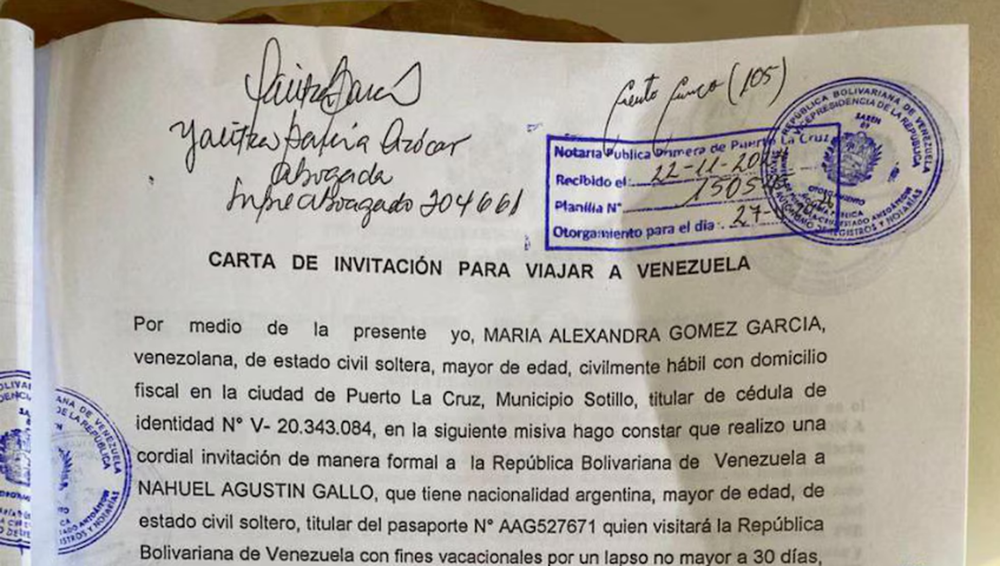 Yalitza Safira Azócar
Abogada
Inpreabogado 204661
Ciento Cinco (105)
REPÚBLICA BOLIVARIANA DE VENEZUELA
VICEPRESIDENCIA DE LA REPÚBLICA
SAREN
Notaria Publica Primera de Puerto La Cruz
Recibido el: 22-11-20
Planilla N° 1505
Otorgamiento para el dia: 27-
CARTA DE INVITACIÓN PARA VIAJAR A VENEZUELA
Por medio de la presente yo, MARIA ALEXANDRA GOMEZ GARCIA,
venezolana, de estado civil soltera, mayor de edad, civilmente hábil con domicilio
fiscal en la ciudad de Puerto La Cruz, Municipio Sotillo, titular de cédula de
identidad N° V- 20.343.084, en la siguiente misiva hago constar que realizo una
cordial invitación de manera formal a la República Bolivariana de Venezuela a
NAHUEL AGUSTIN GALLO, que tiene nacionalidad argentina, mayor de edad, de
estado civil soltero, titular del pasaporte N° AAG527671 quien visitará la República
Bolivariana de Venezuela con fines vacacionales por un lapso no mayor a 30 días,